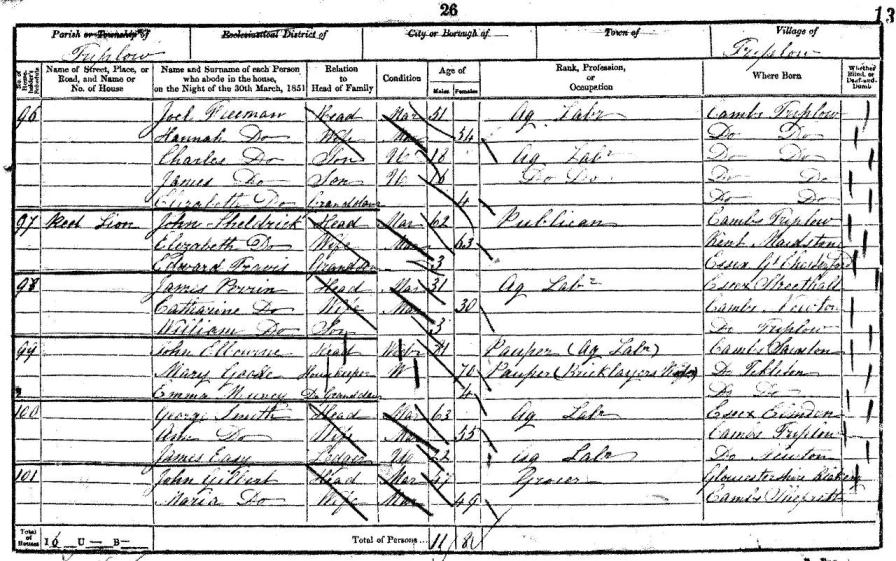 26
13
Parish or Township of Ecclesiastical District of City or Borough of Town of Village of
Triplow Triplow
No. of House-holder's Schedule Name of Street, Place, or Road, and Name or No. of House Name and Surname of each Person who abode in the house, on the Night of the 30th March, 1851 Relation to Head of Family Condition Age of Males Females Rank, Profession, or Occupation Where Born Whether Blind, or Deaf-and-Dumb
96 Joel Freeman Head Mar 51 Ag Labr Cambs Triplow
Hannah Do Wife Mar 54 Do Do
Charles Do Son U 18 Ag Labr Do Do
James Do Son U 16 Do Do Do Do
Elizabeth Do Granddaur 4 Do Do
97 Red Lion John Sheldrick Head Mar 62 Publican Cambs Triplow
Elizabeth Do Wife Mar 63 Kent Maidstone
Edward Travis Grandson 3 Essex Gt Chesterford
98 James Perrin Head Mar 31 Ag Labr Essex Streethall
Catharine Do Wife Mar 30 Cambs Newton
William Do Son 3 Do Triplow
99 John Head 71 Pauper (Ag Labr) Cambs
Mary Goode Housekeeper W 70 Pauper (Bricklayers Do
Emma Muncy Do Granddaur 4 Do Do
100 George Smith Head Mar 63 Ag Labr Essex
Ann Do Wife Mar 55 Cambs Triplow
James Easy Lodger U 22 Ag Labr Do Newton
101 John Gilbert Head Mar Grocer Gloucestershire
Maria Do Wife Mar 49 Cambs
Total of Houses 16 U — B — Total of Persons... 11 8